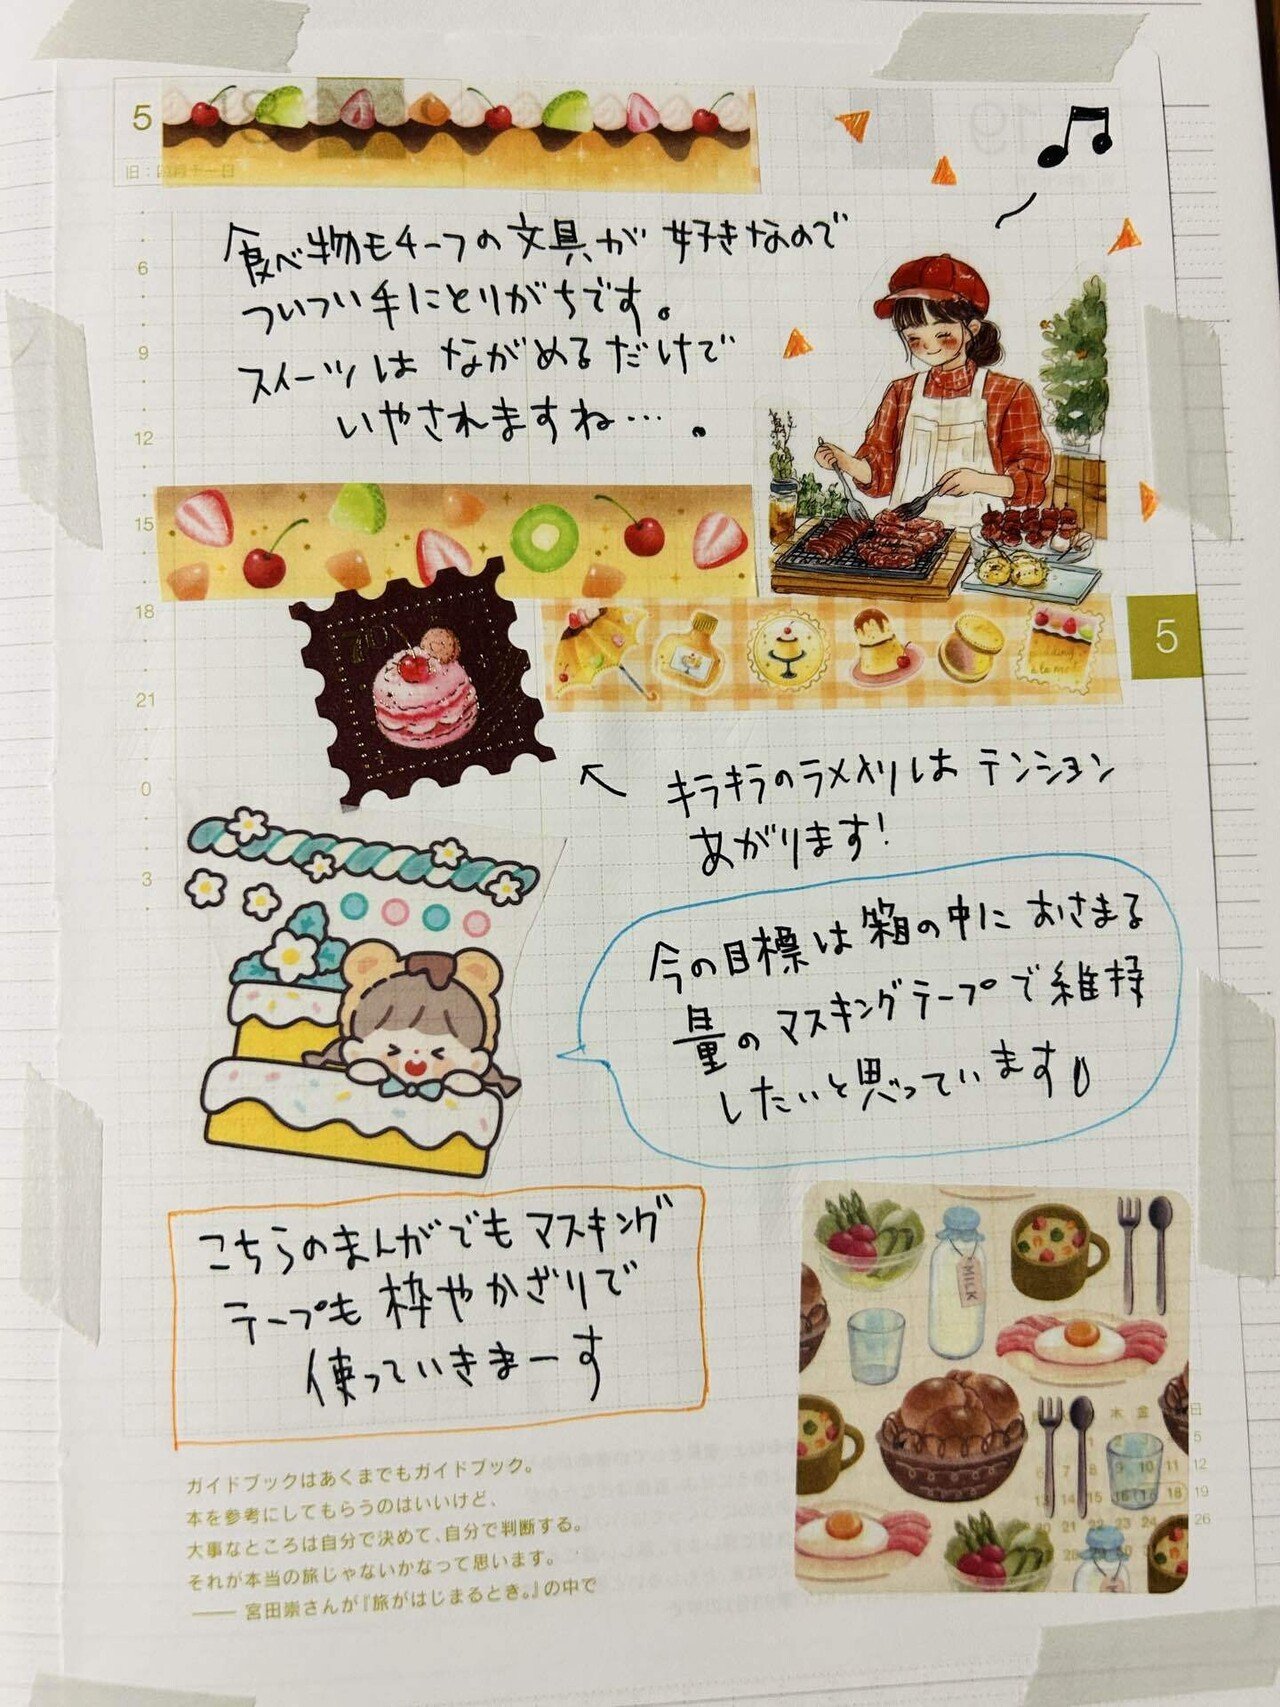 5
食べ物モチーフの文具が好きなので
ついつい手にとりがちです。
スイーツはながめるだけで
いやされますね…。
6
9
12
15
18
21
0
3
5
キラキラのラメ入りはテンション
あがります!
今の目標は箱の中におさまる
量のマスキングテープで維持
したいと思っています
こちらのまんがでもマスキング
テープも枠やかざりで
使っていきまーす
MILK
ガイドブックはあくまでもガイドブック。
本を参考にしてもらうのはいいけど、
大事なところは自分で決めて、自分で判断する。
それが本当の旅じゃないかなって思います。
—— 宮田崇さんが『旅がはじまるとき。』の中で